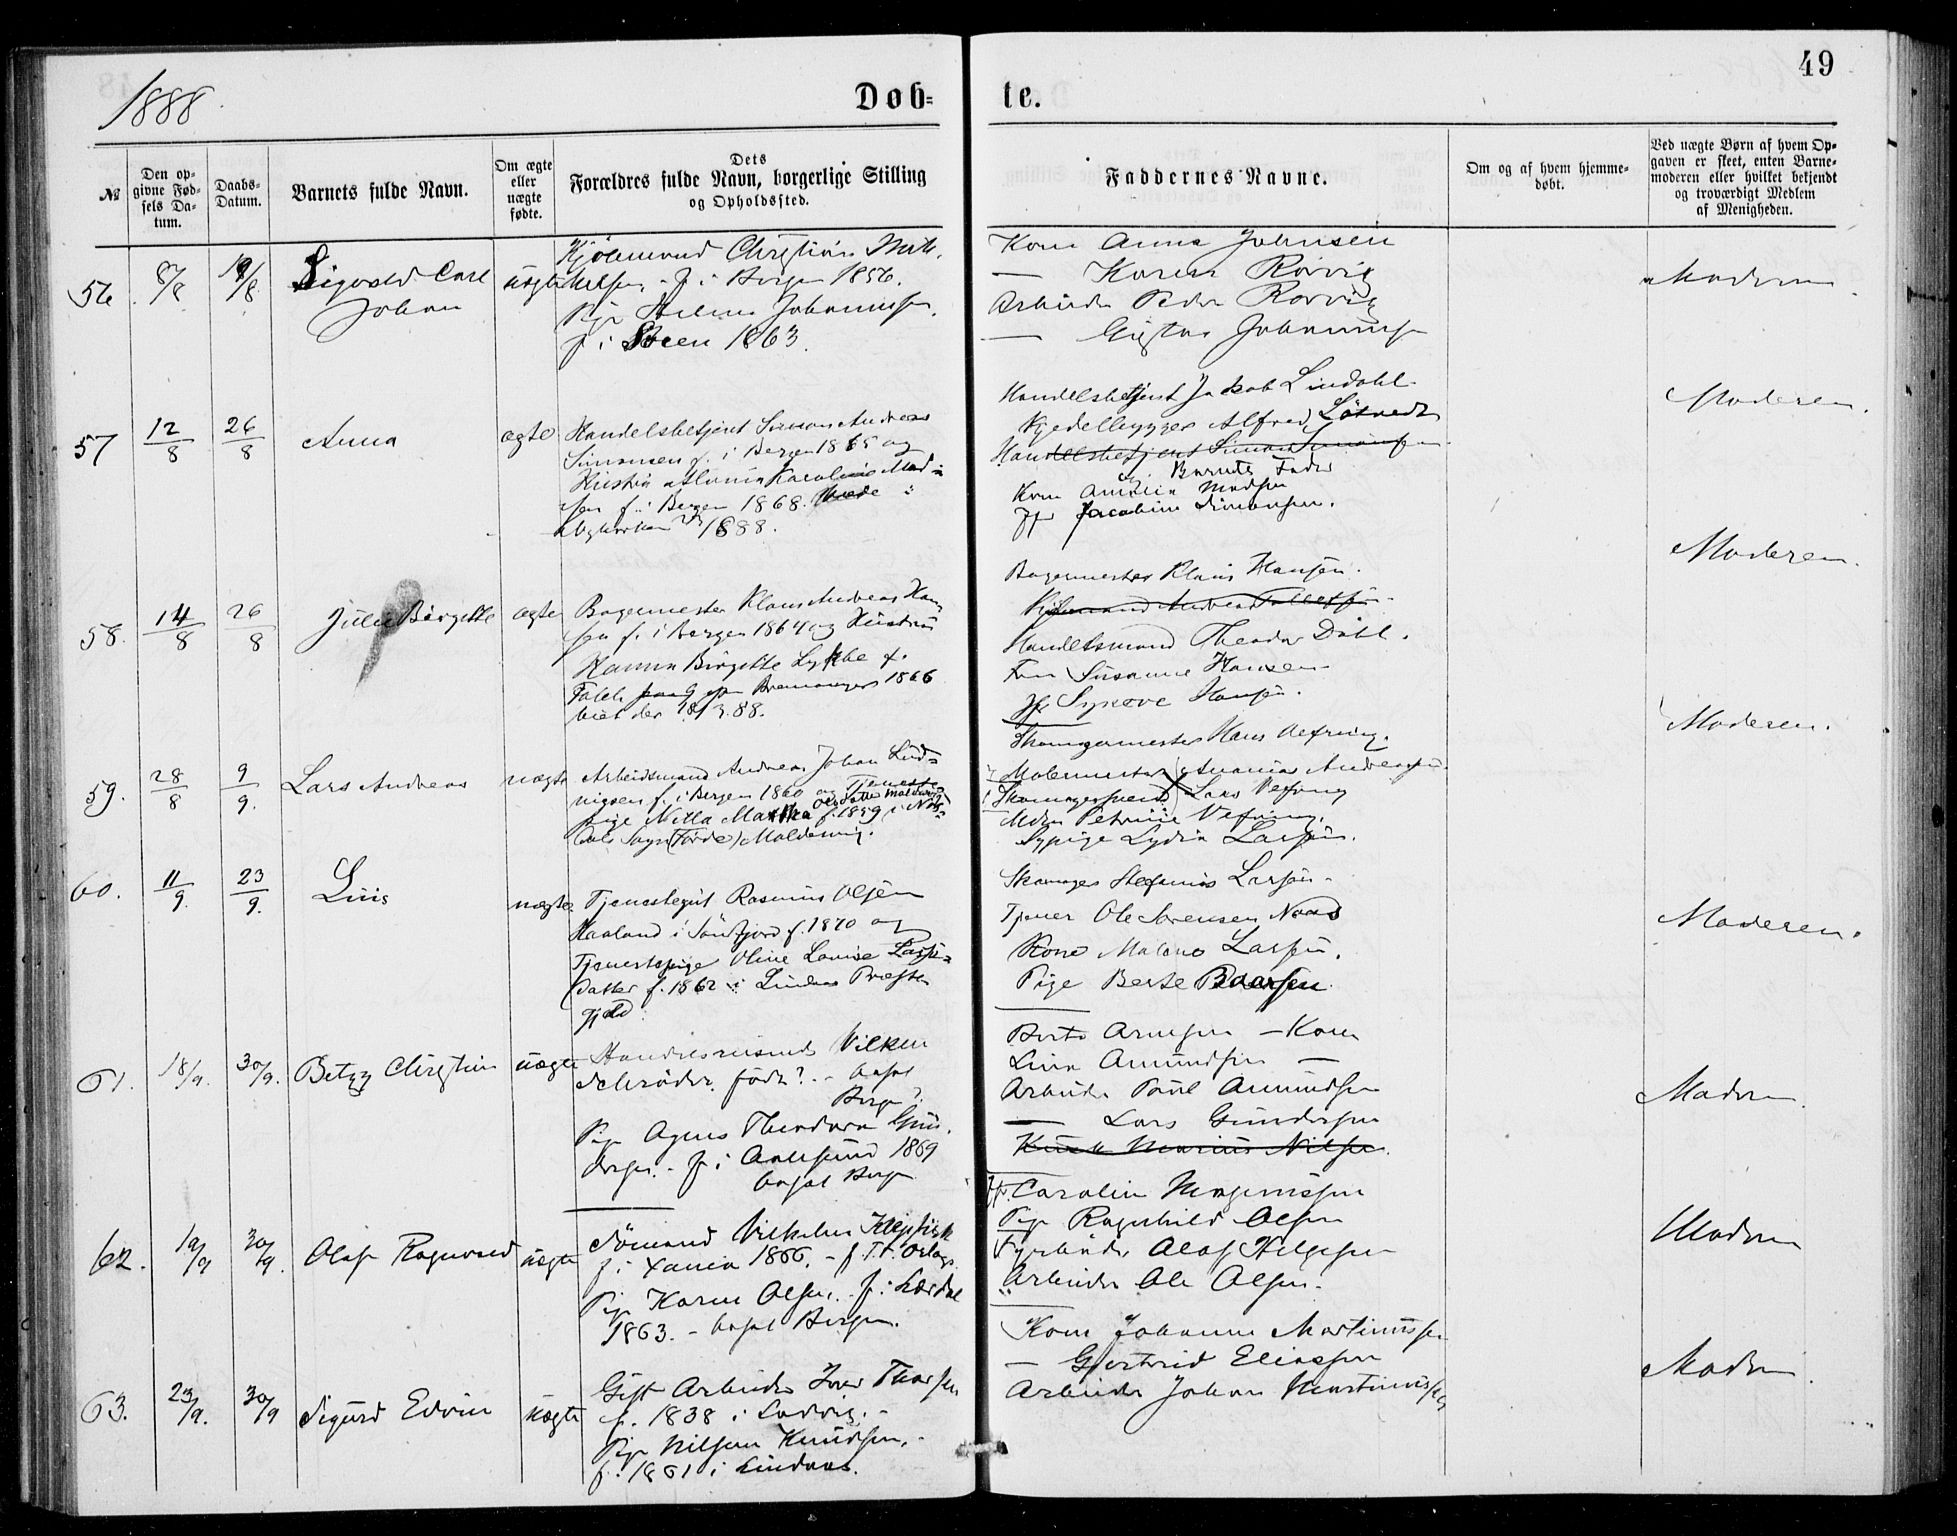 49
1888.
Døb=
te.
№
Den op-
givne Fød-
sels Da-
tum.
Daabs-
Datum.
Barnets fulde Navn.
Om ægte
eller
uægte
fødte.
Dets
Forældres fulde Navn, borgerlige Stilling
og Opholdssted.
Faddernes Navne.
Om og af hvem hjemme-
døbt.
Ved uægte Børn af hvem Op-
gaven er skeet, enten Barne-
moderen eller hvilket bekjendt
og troværdigt Medlem
af Menigheden.
56 8/8 19/8 Sigvald Carl
Johan
uægte
Kjøbmand Christian
f. i Bergen 1856.
Pige Helene Johannessen,
f. i 1863.
Kone Anna Johnsen
— Karen Rørvig
Arbeider Peder Rørvig
— Gustav Johannessen
Moderen
57 12/8 26/8 Anna ægte
Handelsbetjent Simon Andreas
Simonsen f. i Bergen 1865 og
Hustru Karoline Mad-
sen f. i Bergen 1868.
1888.
Handelsbetjent Jakob Lindahl
Alfred
Handelsbetjent Simon Simonsen
Barnets Fader
Kone Amalia Madsen
Jfr Jacobine Simonsen.
Moderen.
58. 14/8 26/8 Julie Birgitte ægte
Bagermester Klaus Andreas Han-
sen f. i Bergen 1864 og Hustru
Hanna Birgitte Lykke f.
Bremanger 1866
viet den 18/3.88.
Bagermester Klaus Hansen.
Kjøbmand Andreas Tollefsen
Handelsmand Theodor Dahl.
Fru Susanne Hansen
Jfr Synøve Hansen.
Moderen.
59. 28/8 9/9. Lars Andreas uægte
Arbeidsmand Andreas Johan Lud-
vigsen f. i Bergen 1860 og Tjeneste-
pige Nilla Martha f. 1859 i
Sogn (Førde)
Skomagermester Hans Vefring.
Malermester Ananias Andreassen
Skomagersvend Lars Vefring
Mdm Petrine Vefring.
Sypige Lydia Larsen.
Moderen.
60. 11/9. 23/9. Luis uægte
Tjenestegut Rasmus Olsen
Haaland i Søndfjord f. 1870 og
Tjenestepige Oline Louise Lars-
datter f. 1862 i Lindaas Præste-
gjeld
Skomager Stefanus Larsen
Tjener Ole Sørensen
Kone Malene Larsen.
Pige Berte
Moderen.
61. 18/9. 30/9. Betzy Christine uægte
Handelsreisende Vilken
Schrøder, født? – bosat
Bergen?
Pige Agnes Theodora Gun-
dersen. – f. i Aalesund 1869
bosat Bergen
Berte Arnesen – Kone
Lina Amundsen —
Arbeider Paul Amundsen
— Lars Gundersen
Marius Nilsen.
Moderen.
62. 19/9 30/9. Olaf Ragnvald uægte
Sømand Vilhelm
f. i Xania 1866. – f. T. t. Orlogs.
Pige Karen Olsen. – f. i Lærdal
1863. – bosat Bergen.
Jfr. Carolin Magnussen
Pige Ragnhild Olsen
Fyrbøder Olaf Helgesen
Arbeider Ole Olsen.
Moderen
63. 23/9. 30/9 Sigurd Edvin uægte
Gift Arbeider Iver Thorsen
f. 1838 i Ladvig. –
Pige Nilsine Knudsen, –
f. 1861 i Lindaas.
Kone Johanne Martinussen
— Gjertrud Eliassen
Arbeider Johan Martinussen
Moderen.